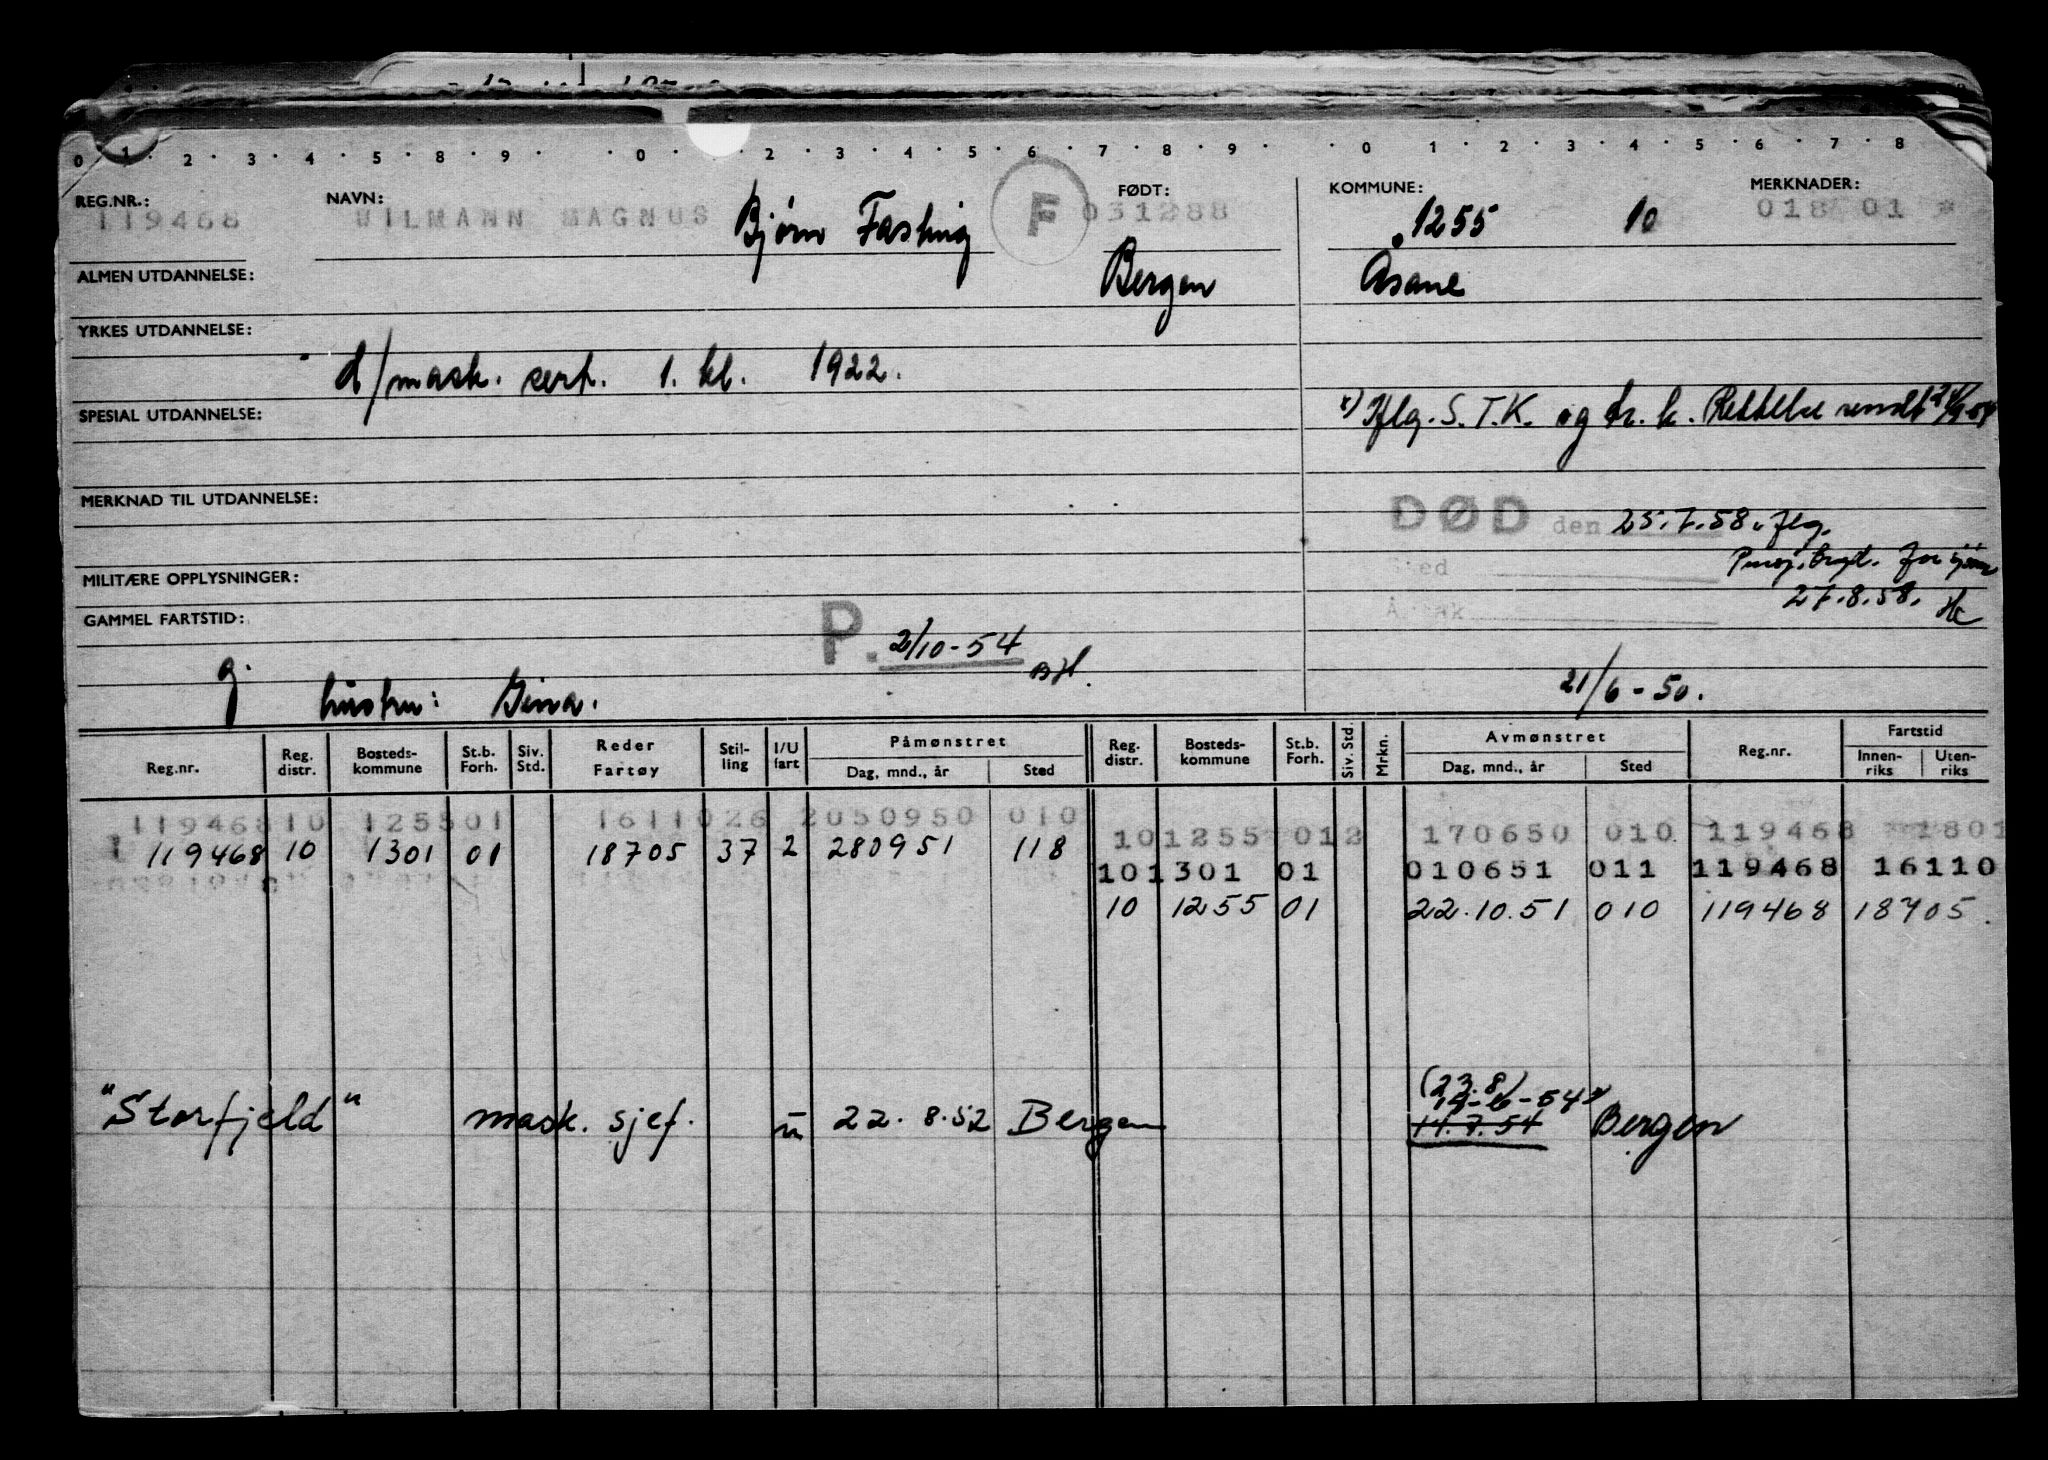 0 1 2 3 4 5 8 9 0 2 3 4 5 6 7 8 9 0 1 2 3 4 5 6 7 8
REG.NR.: NAVN: FØDT: KOMMUNE: MERKNADER:
119468 WILMANN MAGNUS Bjørn Fasting F 031288 1255 10 018 01 *
ALMEN UTDANNELSE: Bergen Åsane
YRKES UTDANNELSE:
d/mask. sert. 1. kl. 1922.
SPESIAL UTDANNELSE: x) Iflg. S.T.K. og tr. k. Rettelse sendt
MERKNAD TIL UTDANNELSE: DØD den 25.7.58. flg.
MILITÆRE OPPLYSNINGER: Sted for sjøm
GAMMEL FARTSTID: P. 2/10-54 Årsak 27.8.58.
g. hustru: Gina. 21/6-50.
Reg.nr. Reg. distr. Bosteds-kommune St.b. Forh. Siv. Std. Reder Fartøy Stil-ling I/U fart Påmønstret Dag, mnd., år Sted Reg. distr. Bosteds-kommune St.b. Forh. Siv. Std. Mrkn. Avmønstret Dag, mnd., år Sted Reg.nr. Fartstid Innen-riks Uten-riks
119468 10 1255 01 1611026 2050950 010 10 1255 012 170650 010 119468 1801
119468 10 1301 01 18705 37 2 280951 118 10 1301 01 010651 011 119468 16110
10 1255 01 22.10.51 010 119468 18705.
"Storfjeld" mask. sjef. u 22.8.52 Bergen (23.8) 14.7.54 Bergen